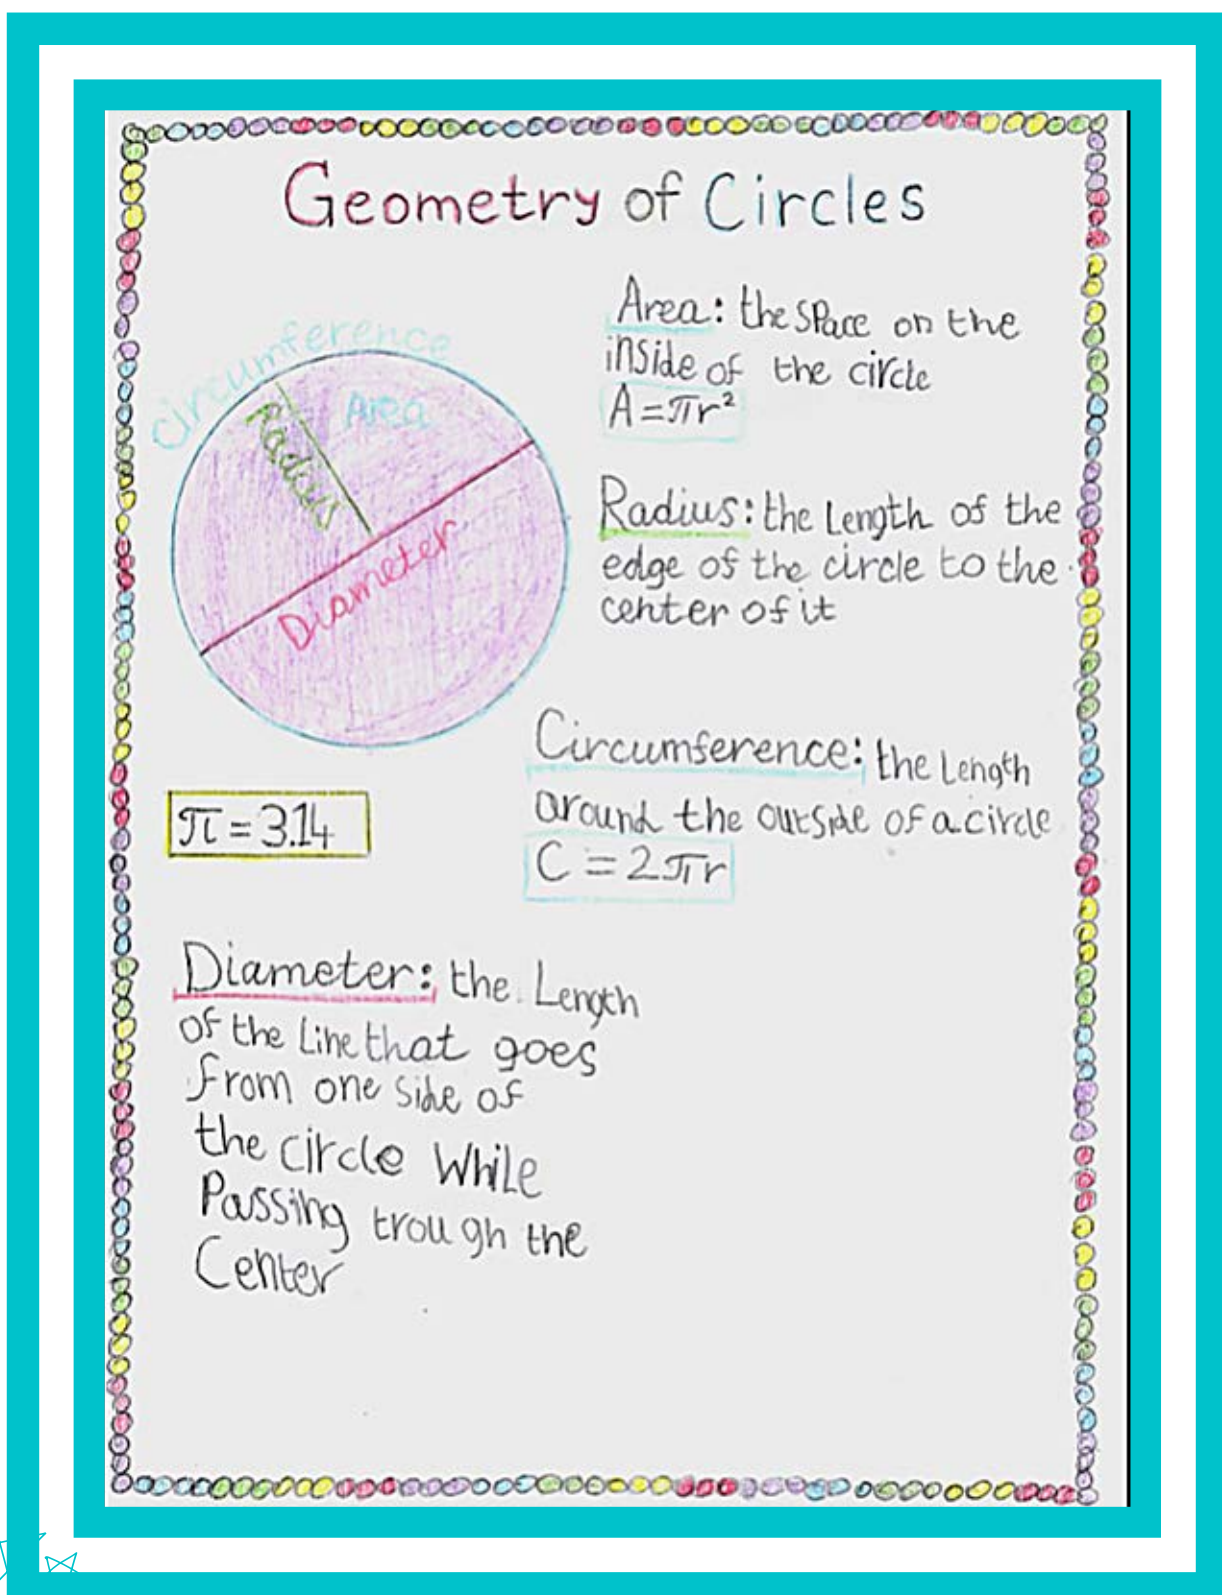 Geometry of Circles
circumference
Area
Radius
Diameter
Area: the space on the
inside of the circle
A=πr²
Radius: the Length of the
edge of the circle to the
center of it
Circumference: the Length
around the outside of a circle
C = 2πr
π = 3.14
Diameter: the Length
of the Line that goes
from one side of
the circle While
Passing trough the
Center